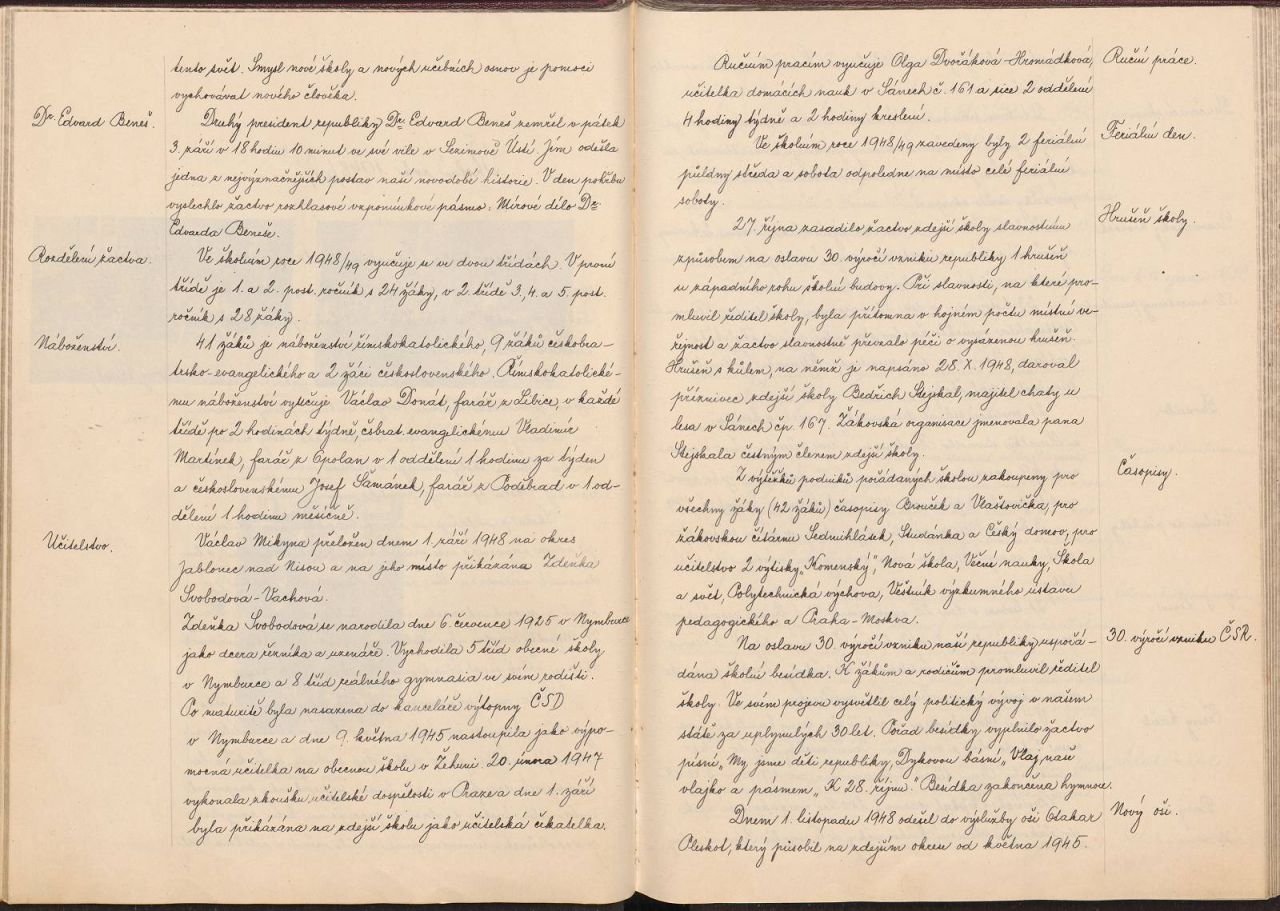 tento svět. Smysl nové školy a nových učebních osnov je pomoci
vychovávat nového člověka.
Dr. Edvard Beneš.
Druhý president republiky Dr. Edvard Beneš zemřel v pátek
3. září v 18 hodin 10 minut ve své vile v Sezimově Ústí. Jím odešla
jedna z nejvýznačnějších postav naší novodobé historie. V den pohřbu
vyslechlo žactvo rozhlasové vzpomínkové pásmo: Mírové dílo Dr.
Edvarda Beneše.
Rozdělení žactva.
Ve školním roce 1948/49 vyučuje se ve dvou třídách. V první
třídě je 1. a 2. post. ročník s 24 žáky, v 2. třídě 3., 4. a 5. post.
ročník s 28 žáky.
Náboženství.
41 žáků je náboženství římskokatolického, 9 žáků českobra-
trsko-evangelického a 2 žáci československého. Římskokatolické-
mu náboženství vyučuje Václav Donát, farář z Libice, v každé
třídě po 2 hodinách týdně, čsbrat. evangelickému Vladimír
Martínek, farář z Opolan v 1 oddělení 1 hodinu za týden
a československému Josef Šamánek, farář z Poděbrad v 1 od-
dělení 1 hodinu měsíčně.
Učitelstvo.
Václav Mikyna přeložen dnem 1. září 1948 na okres
Jablonec nad Nisou a na jeho místo přikázána Zdeňka
Svobodová-Vachová.
Zdeňka Svobodová se narodila dne 6. července 1925 v Nymburce
jako dcera řezníka a uzenáře. Vychodila 5 tříd obecné školy
v Nymburce a 8 tříd reálného gymnasia ve svém rodišti.
Po maturitě byla nasazena do kanceláře výtopny ČSD
v Nymburce a dne 9. května 1945 nastoupila jako výpo-
mocná učitelka na obecnou školu v Žehuni. 20. února 1947
vykonala zkoušku učitelské dospělosti v Praze a dne 1. září
byla přikázána na zdejší školu jako učitelská čekatelka.
Ručním pracím vyučuje Olga Dvořáková-Hromádková,
Ruční práce.
učitelka domácích nauk v Sánech č. 161 a sice 2 oddělení
4 hodiny týdně a 2 hodiny kreslení.
Ve školním roce 1948/49 zavedeny byly 2 feriální
Feriální den.
půldny středa a sobota odpoledne na místo celé feriální
soboty.
27. října zasadilo žactvo zdejší školy slavnostním
Hrušeň školy.
způsobem na oslavu 30. výročí vzniku republiky 1 hrušeň
u západního rohu školní budovy. Při slavnosti, na které pro-
mluvil ředitel školy, byla přítomna v hojném počtu místní ve-
řejnost a žactvo slavnostně převzalo péči o vysázenou hrušeň.
Hrušeň s kůlem, na němž je napsáno 28. X. 1948, daroval
příznivec zdejší školy Bedřich Stejskal, majitel chaty u
lesa v Sánech čp. 167. Žákovská organisace jmenovala pana
Stejskala čestným členem zdejší školy.
Z výtěžků podniků pořádaných školou zakoupeny pro
Časopisy.
všechny žáky (42 žáků) časopisy Brouček a Vlaštovička, pro
žákovskou čítárnu Sedmihlásek, Studánka a Český domov, pro
učitelstvo 2 výtisky „Komenský“, Nová škola, Věcné nauky, Škola
a svět, Polytechnická výchova, Věstník výzkumného ústavu
pedagogického a Praha-Moskva.
Na oslavu 30. výročí vzniku naší republiky uspořá-
30. výročí vzniku ČSR.
dána školní besídka. K žákům a rodičům promluvil ředitel
školy. Ve svém projevu vysvětlil celý politický vývoj v našem
státě za uplynulých 30 let. Pořad besídky vyplnilo žactvo
písní „My jsme děti republiky, Dykovou básní „Vlaj, naše
vlajko a pásmem „K 28. říjnu.“ Besídka zakončena hymnou.
Dnem 1. listopadu 1948 odešel do výslužby oši Otakar
Nový oši.
Pleskot, který působil na zdejším okrese od května 1945.